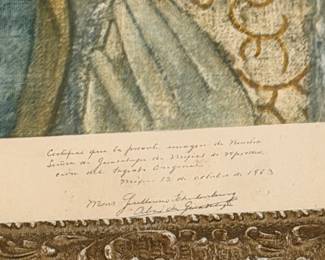 Certifico que la presente imagen de Nuestra
Señora de Guadalupe de Mexico es reproduc
cion del Sagrado Original
Mexico 12 de Octubre de 1963
Mons Guillermo Schulenburg
Abad de Guadalupe